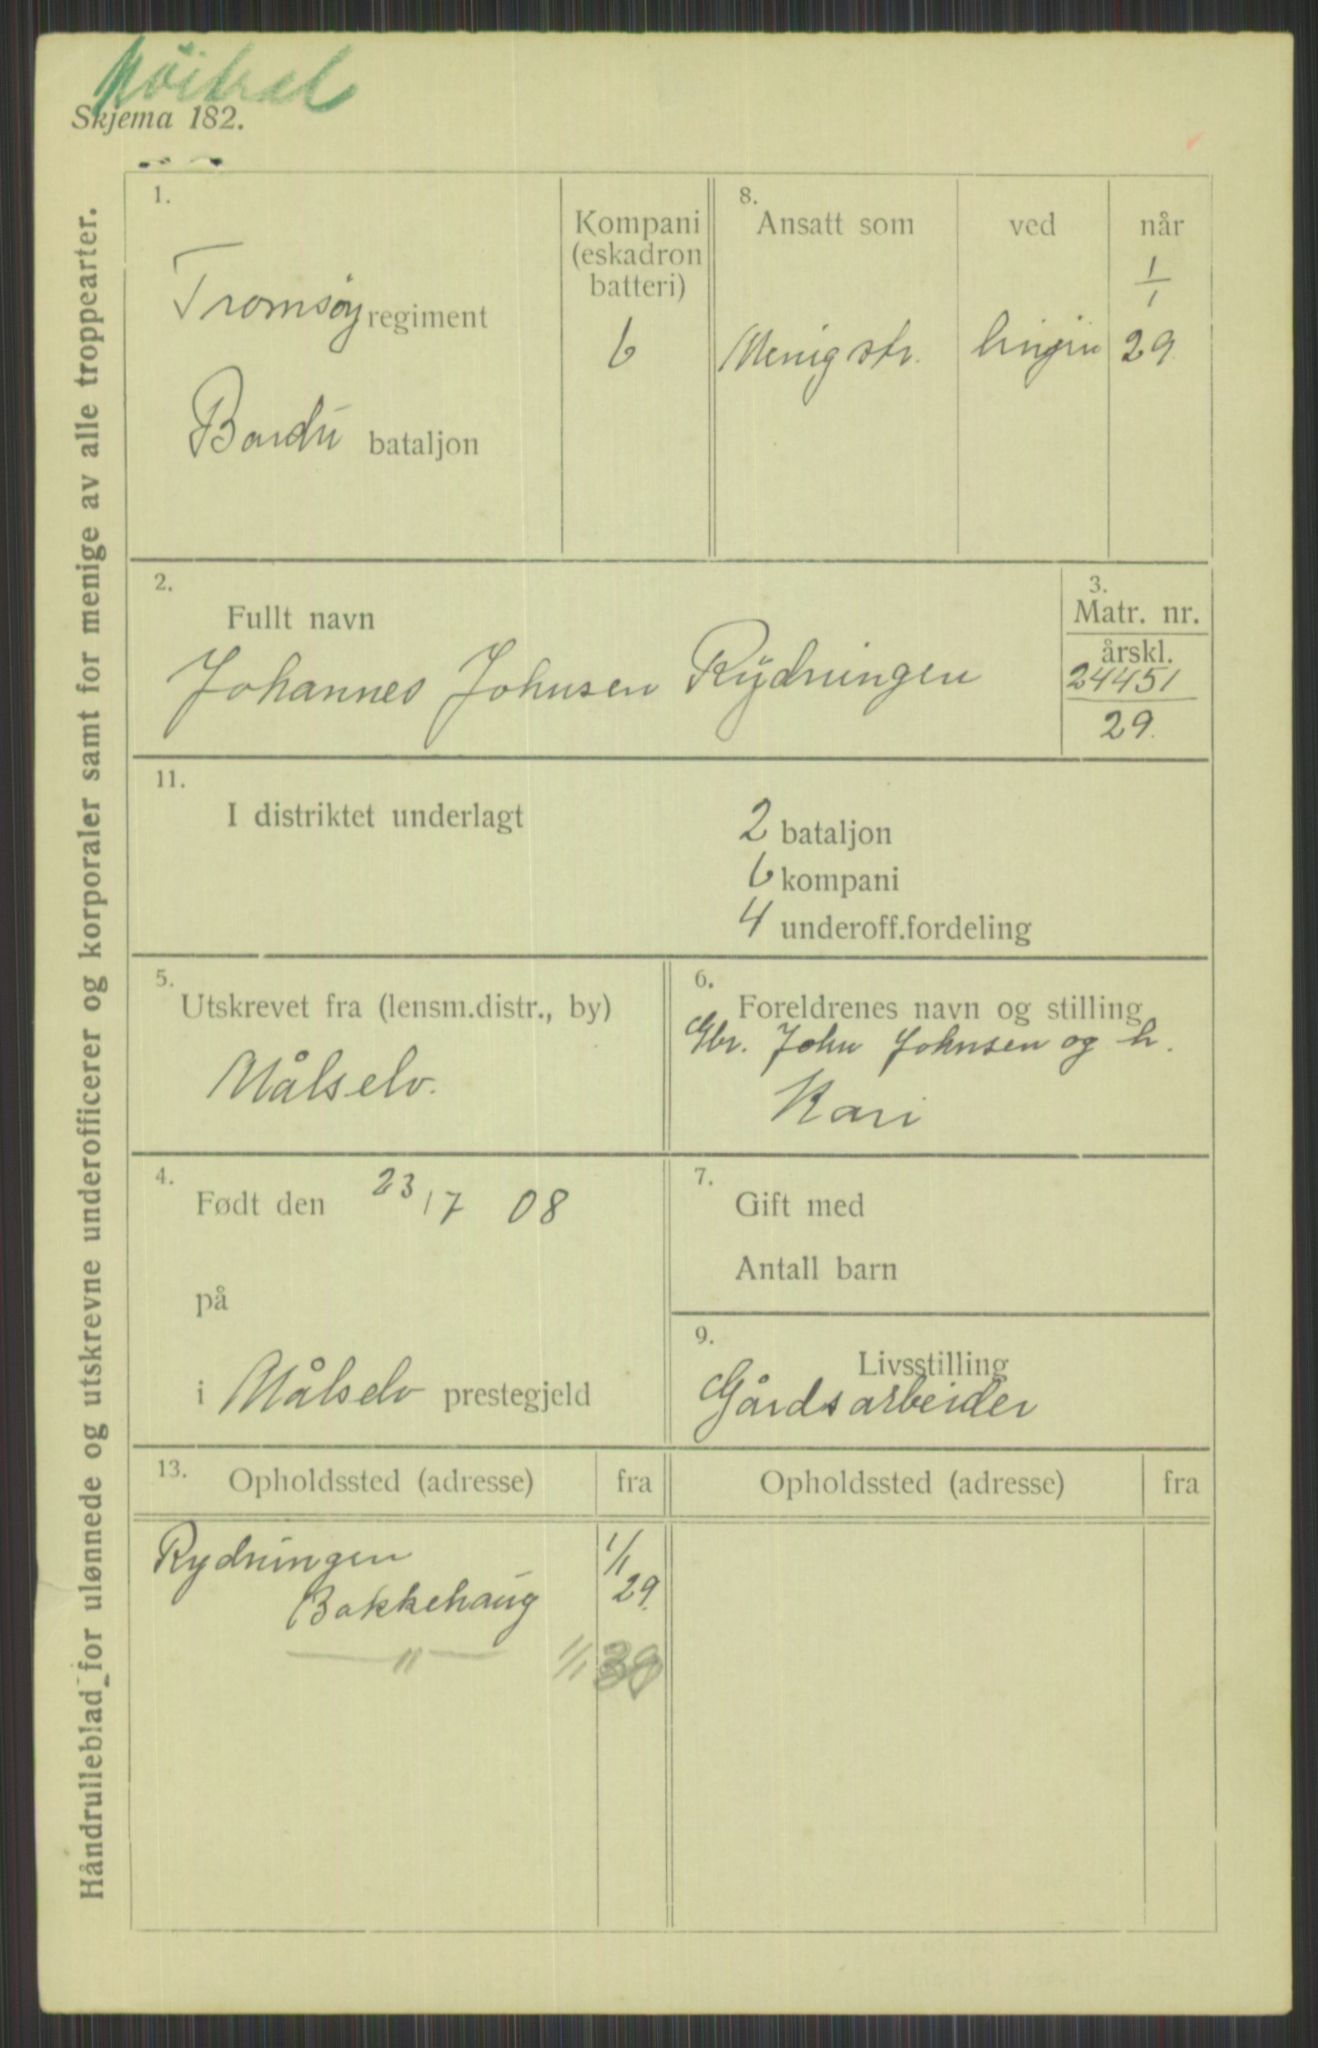 Nöitral
Skjema 182.
Håndrulleblad for ulønnede og utskrevne underofficerer og korporaler samt for menige av alle troppearter.
1.
Tromsøy regiment
Bardu bataljon
Kompani
(eskadron
batteri)
6
8.
Ansatt som ved når
1/1
Menig str. linjen 29.
2.
Fullt navn
Johannes Johnsen Rydningen
3.
Matr. nr.
årskl.
24451
29.
11.
I distriktet underlagt
2 bataljon
6 kompani
4 underoff.fordeling
5.
Utskrevet fra (lensm.distr., by)
Målselv.
6.
Foreldrenes navn og stilling
Gbr. John Johnsen og h.
Kari
4.
Født den 23/7 08
på
i Målselv prestegjeld
7.
Gift med
Antall barn
9.
Livsstilling
Gårdsarbeider
13.
Opholdssted (adresse) fra Opholdssted (adresse) fra
Rydningen 1/1
Bakkehaug 29.
— " — 1/1